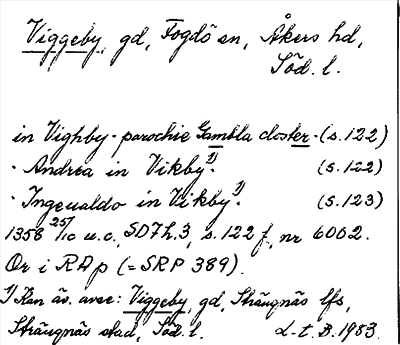 Viggeby, gd, Fogdö sn, Åkers hd,
Söd. l.
in Vighby - parochie Gambla closter - (s.122)
- Andrea in Vikby¹⁾. (s.122)
- Ingeualdo in Vikby¹⁾. (s.123)
1358 25/10 u.o., SD7h.3, s.122 f, nr 6002.
Or i RAp (= SRP 389).
1) Kan äv. avse: Viggeby, gd, Strängnäs lfs,
Strängnäs stad, Söd. l. L.t.B.1983.